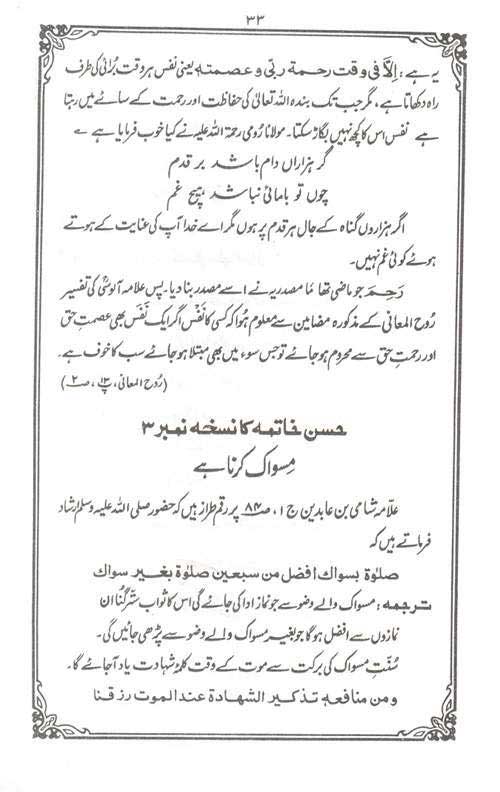 ۳۳
یہ ہے: اِلَّا فی وقت رحمة ربّی وعصمته یعنی نفس ہر وقت بُرائی کی طرف
راہ دکھاتا ہے، مگر جب تک بندہ اللہ تعالیٰ کی حفاظت اور رحمت کے سائے میں رہتا
ہے نفس اس کا کچھ نہیں بگاڑ سکتا۔ مولانا رُومی رحمۃ اللہ علیہ نے کیا خوب فرمایا ہے ؎
گر ہزاراں دام باشد بر قدم
چوں تو بامائی نباشد ہیچ غم
اگر ہزاروں گناہ کے جال ہر قدم پر ہوں مگر اے خدا آپ کی عنایت کے ہوتے
ہوئے کوئی غم نہیں۔
رَحِمَ جو ماضی تھا مَا مصدریہ نے اسے مصدر بنا دیا۔ پس علامہ آلوسیؒ کی تفسیر
رُوح المعانی کے مذکورہ مضامین سے معلوم ہُوا کہ کسی کا نَفْس اگر ایک نَفَس بھی عصمتِ حق
اور رحمتِ حق سے محروم ہو جائے تو جس سوء میں بھی مبتلا ہو جائے سب کا خوف ہے۔
(رُوح المعانی، پ۱۳، ص۲)
حسن خاتمہ کا نسخہ نمبر ۳
مِسواک کرنا ہے
علّامہ شامی بن عابدین ج ۱، ص۸۴ پر رقم طراز ہیں کہ حضور صلی اللہ علیہ وسلم ارشاد
فرماتے ہیں کہ
صلوٰة بسواك افضل من سبعين صلوٰة بغير سواك
ترجمہ: مسواک والے وضو سے جو نماز ادا کی جائے گی اس کا ثواب ستّر گُنا ان
نمازوں سے افضل ہو گا جو بغیر مسواک والے وضو سے پڑھی جائیں گی۔
سُنّتِ مسواک کی برکت سے موت کے وقت کلمۂ شہادت یاد آ جائے گا۔
ومن منافعه تذكير الشهادة عند الموت رزقنا